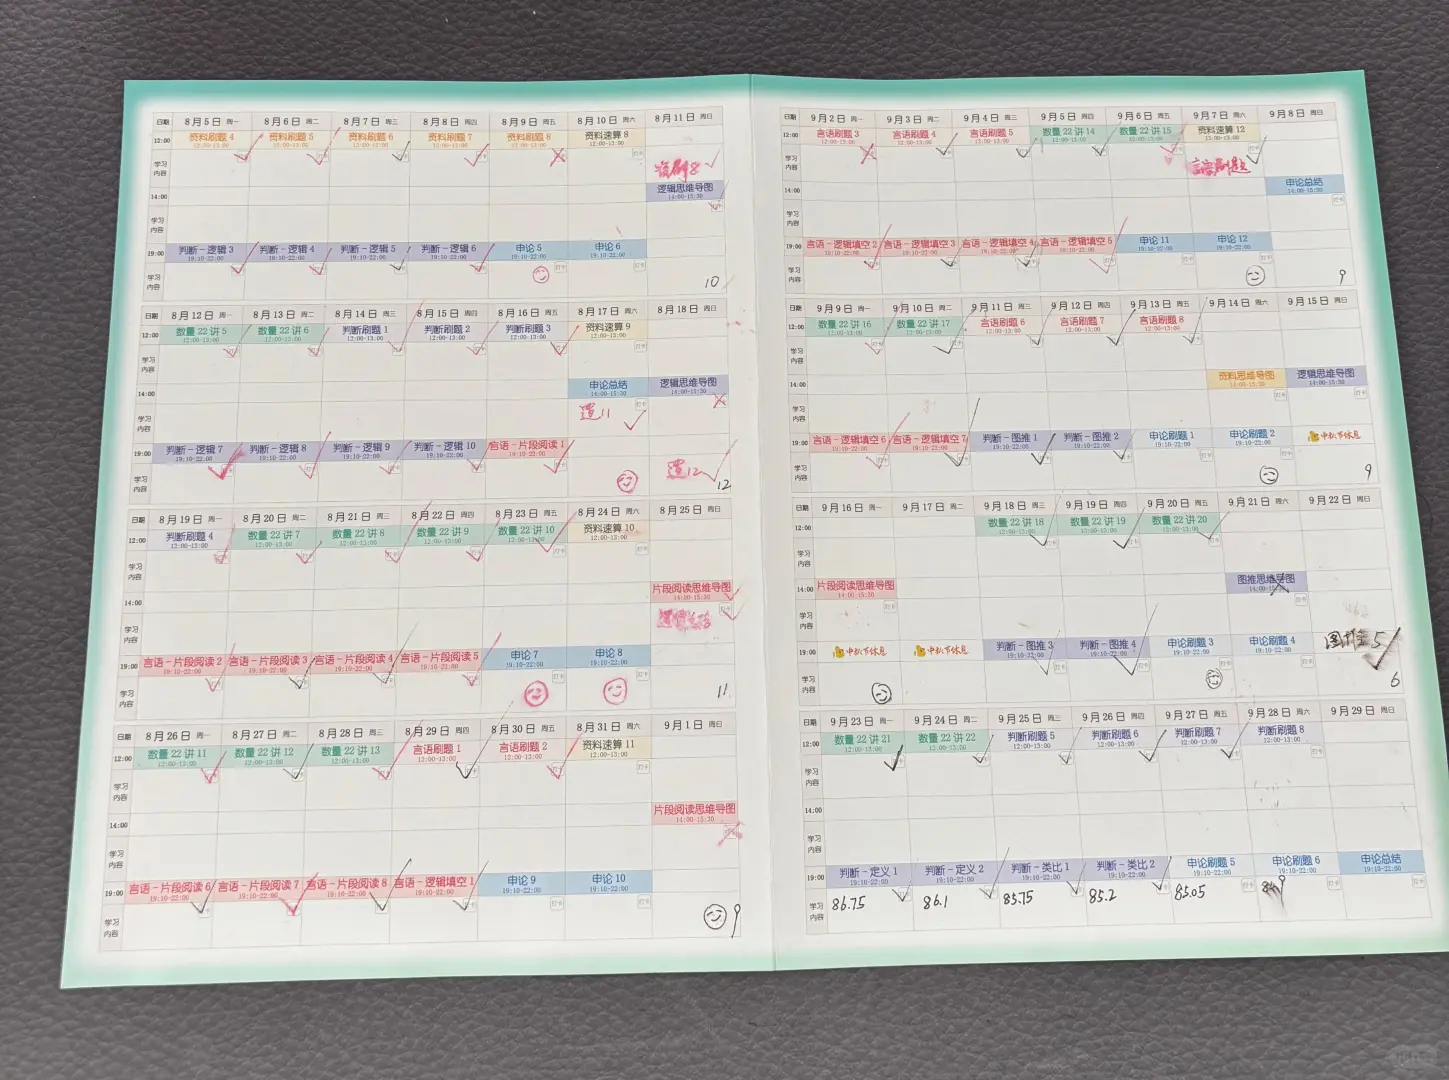 日期 8月5日 周一 8月6日 周二 8月7日 周三 8月8日 周四 8月9日 周五 8月10日 周六 8月11日 周日
12:00 资料刷题 4 资料刷题 5 资料刷题 6 资料刷题 7 资料刷题 8 资料速算 8
12:00-13:00 12:00-13:00 12:00-13:00 12:00-13:00 12:00-13:00 12:00-13:00
学习内容
14:00 逻辑思维导图
14:00-15:30
学习内容
19:00 判断－逻辑 3 判断－逻辑 4 判断－逻辑 5 判断－逻辑 6 申论 5 申论 6
19:10-22:00 19:10-22:00 19:10-22:00 19:10-22:00 19:10-22:00 19:10-22:00
学习内容
10
日期 8月12日 周一 8月13日 周二 8月14日 周三 8月15日 周四 8月16日 周五 8月17日 周六 8月18日 周日
12:00 数量 22 讲 5 数量 22 讲 6 判断刷题 1 判断刷题 2 判断刷题 3 资料速算 9
12:00-13:00 12:00-13:00 12:00-13:00 12:00-13:00 12:00-13:00 12:00-13:00
学习内容
14:00 申论总结 逻辑思维导图
14:00-15:30 14:00-15:30
学习内容
19:00 判断－逻辑 7 判断－逻辑 8 判断－逻辑 9 判断－逻辑 10 言语－片段阅读 1
19:10-22:00 19:10-22:00 19:10-22:00 19:10-22:00 19:10-22:00
学习内容
12
日期 8月19日 周一 8月20日 周二 8月21日 周三 8月22日 周四 8月23日 周五 8月24日 周六 8月25日 周日
12:00 判断刷题 4 数量 22 讲 7 数量 22 讲 8 数量 22 讲 9 数量 22 讲 10 资料速算 10
12:00-13:00 12:00-13:00 12:00-13:00 12:00-13:00 12:00-13:00 12:00-13:00
学习内容
14:00 片段阅读思维导图
14:00-15:30
学习内容
19:00 言语－片段阅读 2 言语－片段阅读 3 言语－片段阅读 4 言语－片段阅读 5 申论 7 申论 8
19:10-22:00 19:10-22:00 19:10-22:00 19:10-22:00 19:10-22:00 19:10-22:00
学习内容
11
日期 8月26日 周一 8月27日 周二 8月28日 周三 8月29日 周四 8月30日 周五 8月31日 周六 9月1日 周日
12:00 数量 22 讲 11 数量 22 讲 12 数量 22 讲 13 言语刷题 1 言语刷题 2 资料速算 11
12:00-13:00 12:00-13:00 12:00-13:00 12:00-13:00 12:00-13:00 12:00-13:00
学习内容
14:00 片段阅读思维导图
14:00-15:30
学习内容
19:00 言语－片段阅读 6 言语－片段阅读 7 言语－片段阅读 8 言语－逻辑填空 1 申论 9 申论 10
19:10-22:00 19:10-22:00 19:10-22:00 19:10-22:00 19:10-22:00 19:10-22:00
学习内容
9
日期 9月2日 周一 9月3日 周二 9月4日 周三 9月5日 周四 9月6日 周五 9月7日 周六 9月8日 周日
12:00 言语刷题 3 言语刷题 4 言语刷题 5 数量 22 讲 14 数量 22 讲 15 资料速算 12
12:00-13:00 12:00-13:00 12:00-13:00 12:00-13:00 12:00-13:00 12:00-13:00
学习内容
14:00 申论总结
14:00-15:30
学习内容
19:00 言语－逻辑填空 2 言语－逻辑填空 3 言语－逻辑填空 4 言语－逻辑填空 5 申论 11 申论 12
19:10-22:00 19:10-22:00 19:10-22:00 19:10-22:00 19:10-22:00 19:10-22:00
学习内容
9
日期 9月9日 周一 9月10日 周二 9月11日 周三 9月12日 周四 9月13日 周五 9月14日 周六 9月15日 周日
12:00 数量 22 讲 16 数量 22 讲 17 言语刷题 6 言语刷题 7 言语刷题 8
12:00-13:00 12:00-13:00 12:00-13:00 12:00-13:00 12:00-13:00
学习内容
14:00 资料思维导图 逻辑思维导图
14:00-15:30 14:00-15:30
学习内容
19:00 言语－逻辑填空 6 言语－逻辑填空 7 判断－图推 1 判断－图推 2 申论刷题 1 申论刷题 2 中秋节休息
19:10-22:00 19:10-22:00 19:10-22:00 19:10-22:00 19:10-22:00 19:10-22:00
学习内容
9
日期 9月16日 周一 9月17日 周二 9月18日 周三 9月19日 周四 9月20日 周五 9月21日 周六 9月22日 周日
12:00 数量 22 讲 18 数量 22 讲 19 数量 22 讲 20
12:00-13:00 12:00-13:00 12:00-13:00
学习内容
14:00 片段阅读思维导图 图推思维导图
14:00-15:30 14:00-15:30
学习内容
19:00 中秋节休息 中秋节休息 判断－图推 3 判断－图推 4 申论刷题 3 申论刷题 4 图推 5
19:10-22:00 19:10-22:00 19:10-22:00 19:10-22:00
学习内容
6
日期 9月23日 周一 9月24日 周二 9月25日 周三 9月26日 周四 9月27日 周五 9月28日 周六 9月29日 周日
12:00 数量 22 讲 21 数量 22 讲 22 判断刷题 5 判断刷题 6 判断刷题 7 判断刷题 8
12:00-13:00 12:00-13:00 12:00-13:00 12:00-13:00 12:00-13:00 12:00-13:00
学习内容
14:00
学习内容
19:00 判断－定义 1 判断－定义 2 判断－类比 1 判断－类比 2 申论刷题 5 申论刷题 6 申论总结
19:10-22:00 19:10-22:00 19:10-22:00 19:10-22:00 19:10-22:00 19:10-22:00 19:10-22:00
学习内容 86.75 86.1 85.75 85.2 85.05